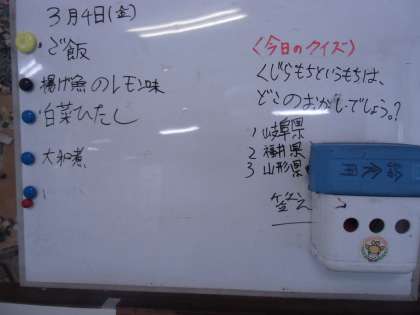 3月4日(金)
ご飯
揚げ魚のレモン味
白菜ひたし
大和煮
<今日のクイズ>
くじらもちというもちは、
どこのおかしでしょう。?
1 岐阜県
2 福井県
3 山形県
答え
給食用